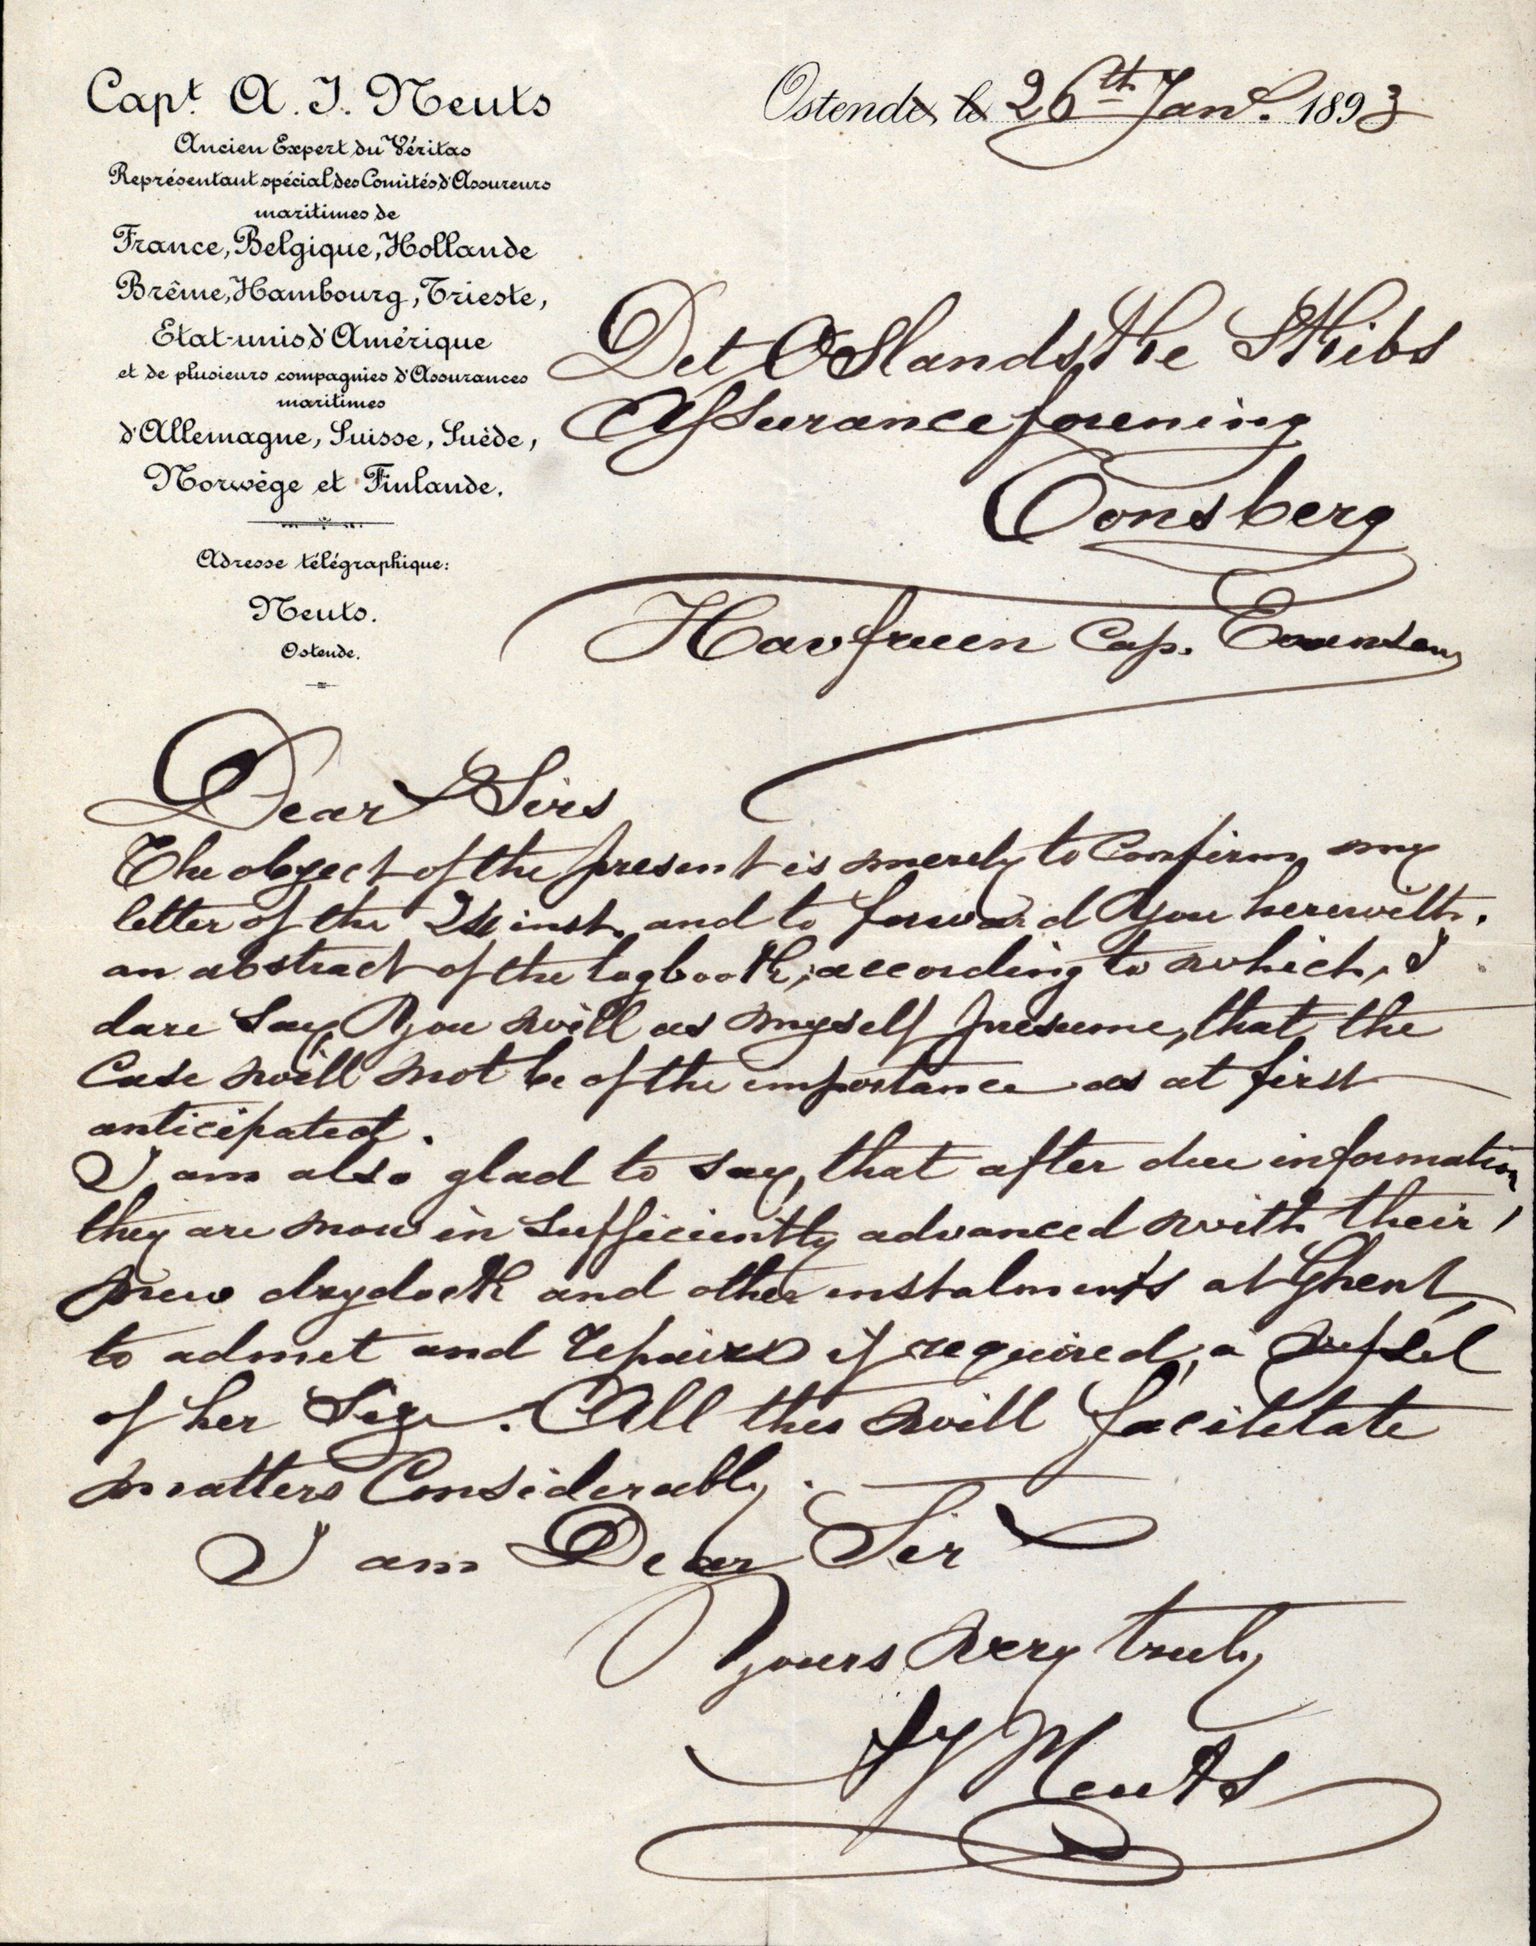 Capt. A. J. Neuts
Ancien Expert du Véritas
Représentant spécial des Comités d'Assureurs
maritimes de
France, Belgique, Hollande
Brême, Hambourg, Trieste,
Etat-unis d'Amérique
et de plusieurs compagnies d'Assurances
maritimes
d'Allemagne, Suisse, Suède,
Norwége et Finlande.
Adresse télégraphique:
Neuts.
Ostende.
Ostende, le 26th Jany. 1893
Det Oslandske Skibs
Assuranceforening
Tonsberg
Havfruen Cap.
Dear Sirs
The object of the present is merely to Confirm my
letter of the 24 inst. and to forward You herewith.
an abstract of the logbook, according to which, I
dare say You will as myself presume, that the
Case will not be of the importance as at first
anticipated.
I am also glad to say, that after due information
they are now in sufficiently advanced with their
new drydock and other instalments at Ghent,
to admit and repair if required, a vessel
of her Size. All this will facilitate
matters Considerably.
I am Dear Sir
Yours very truly
AJ Neuts